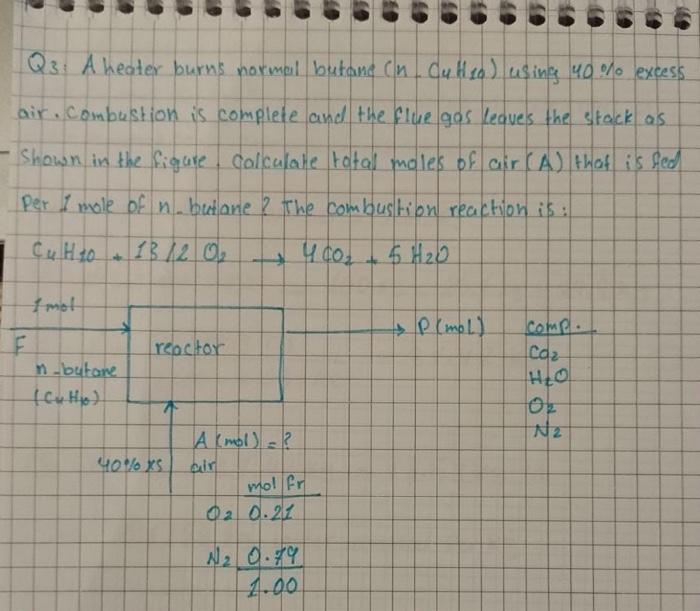 Q3: A heater burns normal butane (n- C4H10) using 40% excess
air. Combustion is complete and the flue gas leaves the stack as
shown in the figure. Calculate total moles of air (A) that is fed
per 1 mole of n-butane? The combustion reaction is:
C4H10 + 13/2 O2 → 4CO2 + 5H2O
1 mol
F
n-butane
(C4H10)
reactor
P(mol)
comp.
CO2
H2O
O2
N2
A(mol) = ?
40% xs air
mol fr
O2 0.21
N2 0.79
1.00